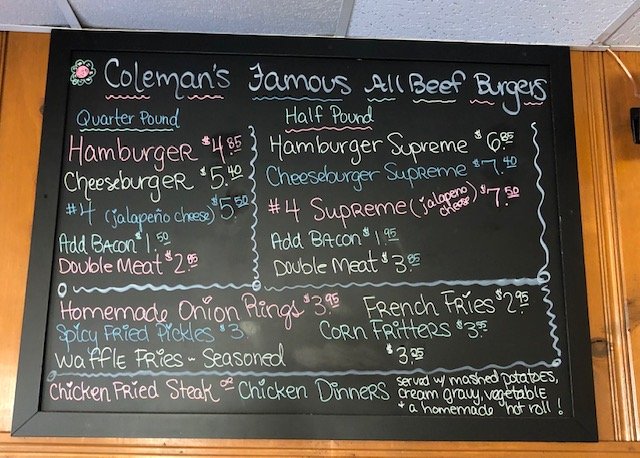 Coleman's Famous All Beef Burgers
Quarter Pound
Hamburger $4.85
Cheeseburger $5.40
#4 (jalapeño cheese) $5.50
Add Bacon $1.50
Double Meat $2.95
Half Pound
Hamburger Supreme $6.85
Cheeseburger Supreme $7.40
#4 Supreme (jalapeño cheese) $7.50
Add Bacon $1.95
Double Meat $3.85
Homemade Onion Rings $3.95
French Fries $2.95
Spicy Fried Pickles $3.
Corn Fritters $3.
Waffle Fries ~ Seasoned $3.
Chicken Fried Steak or Chicken Dinners
served w/ mashed potatoes,
cream gravy, vegetable
+ a homemade hot roll!